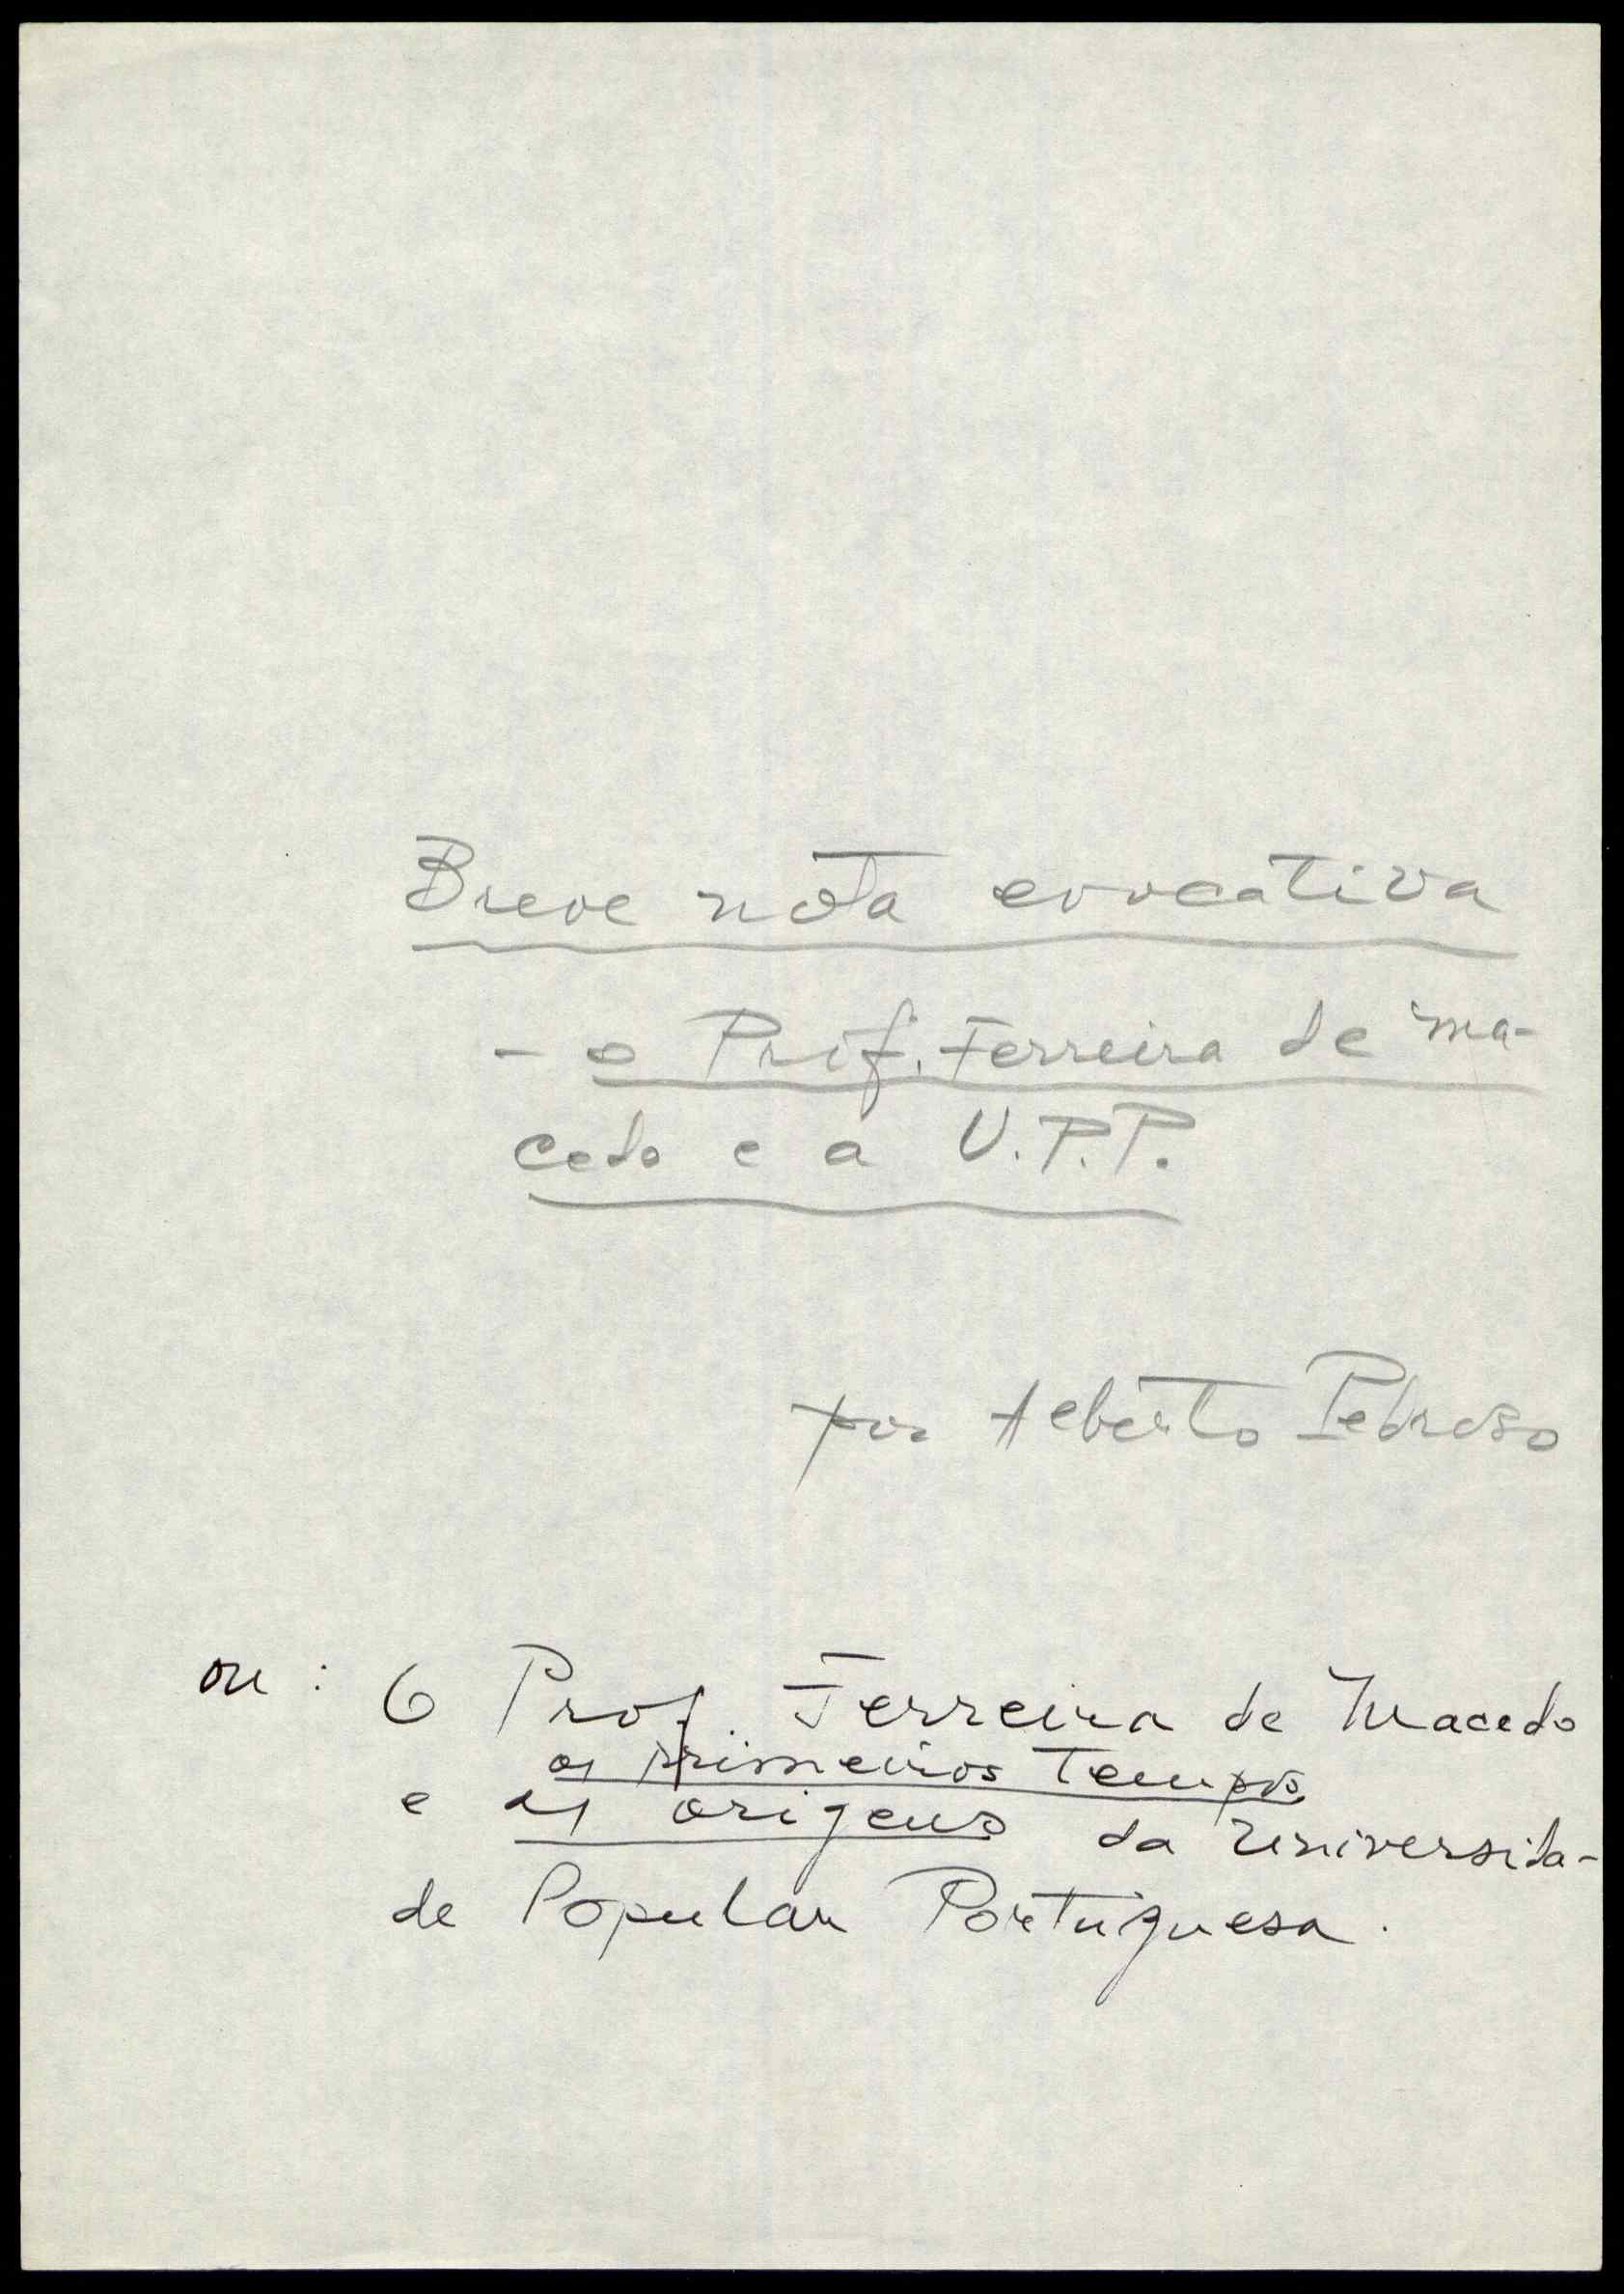 Breve nota evocativa
- o Prof. Ferreira de Ma-
cedo e a U.P.P.
por Alberto Pedroso
ou : O Prof. Ferreira de Macedo
os primeiros tempos
e as origens da Universida-
de Popular Portuguesa.